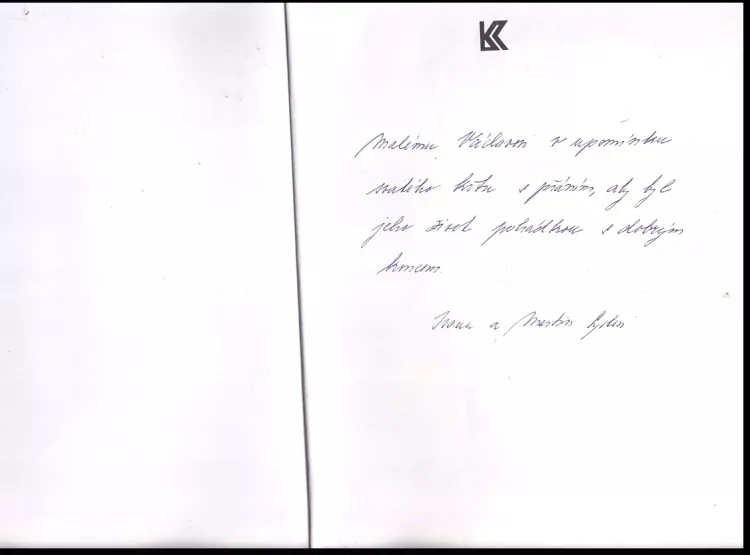 K
Malému Václavovi v upomínku
svatého křtu s přáním, aby byl
jeho život pohádkou s dobrým
koncem.
Ivana a Martin